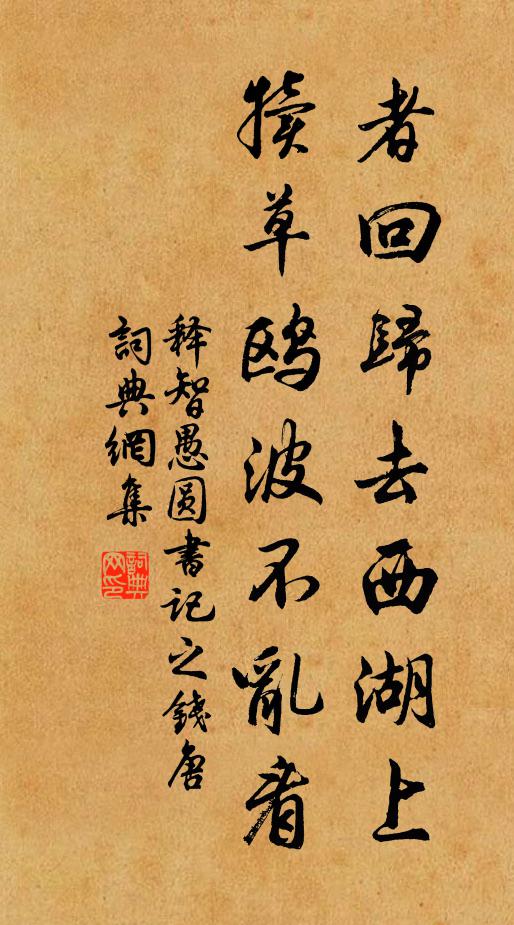 者回歸去西湖上
犢草鷗波不亂看
释智愚圆書记之錢唐
詞典網集
詞典网印